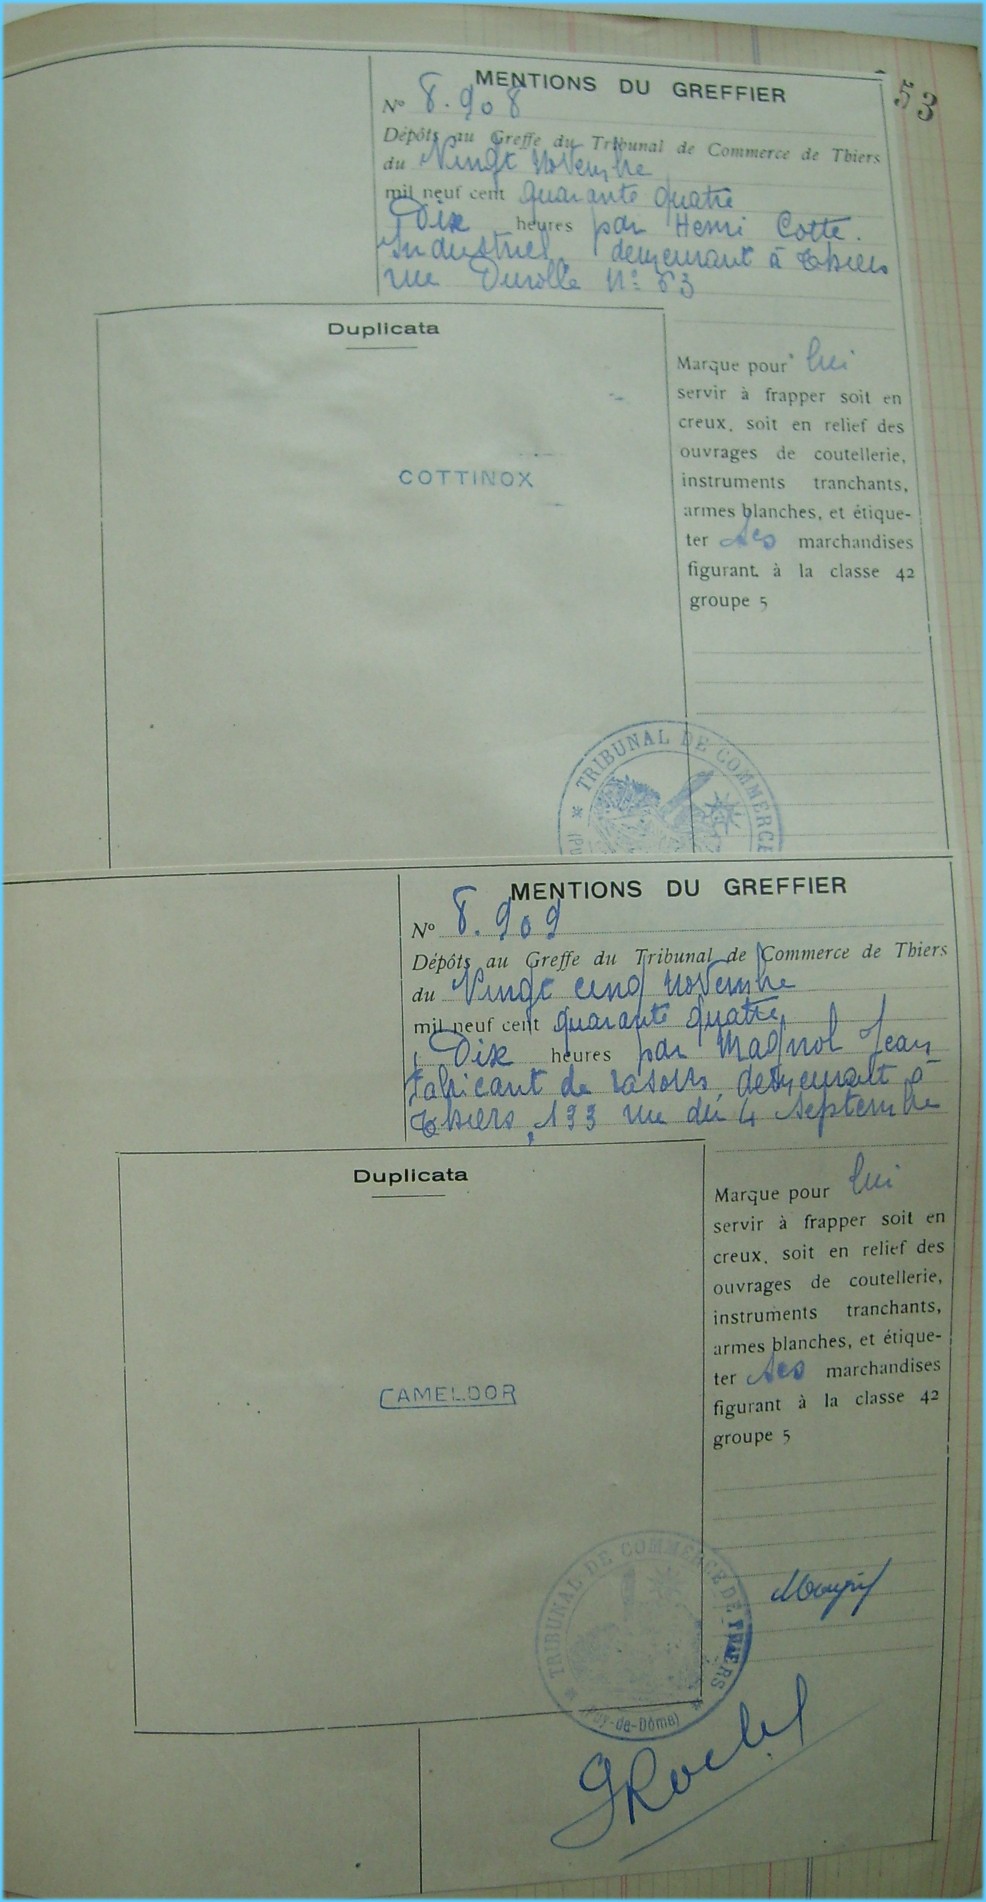 53
MENTIONS DU GREFFIER
N° 8.908
Dépôts au Greffe du Tribunal de Commerce de Thiers
du Vingt Novembre
mil neuf cent quarante quatre
Dix heures par Henri Cotte.
Industriel demeurant à Thiers
rue Durolle N° 63
Duplicata
COTTINOX
Marque pour lui
servir à frapper soit en
creux, soit en relief des
ouvrages de coutellerie,
instruments tranchants,
armes blanches, et étique-
ter ses marchandises
figurant à la classe 42
groupe 5
TRIBUNAL DE COMMERCE
MENTIONS DU GREFFIER
N° 8.909
Dépôts au Greffe du Tribunal de Commerce de Thiers
du Vingt cinq Novembre
mil neuf cent quarante quatre
Dix heures par Magnol Jean
fabricant de rasoirs, demeurant à
Thiers, 193 rue du 4 Septembre
Duplicata
CAMELDOR
Marque pour lui
servir à frapper soit en
creux, soit en relief des
ouvrages de coutellerie,
instruments tranchants,
armes blanches, et étique-
ter ses marchandises
figurant à la classe 42
groupe 5
TRIBUNAL DE COMMERCE DE THIERS
(Puy-de-Dôme)